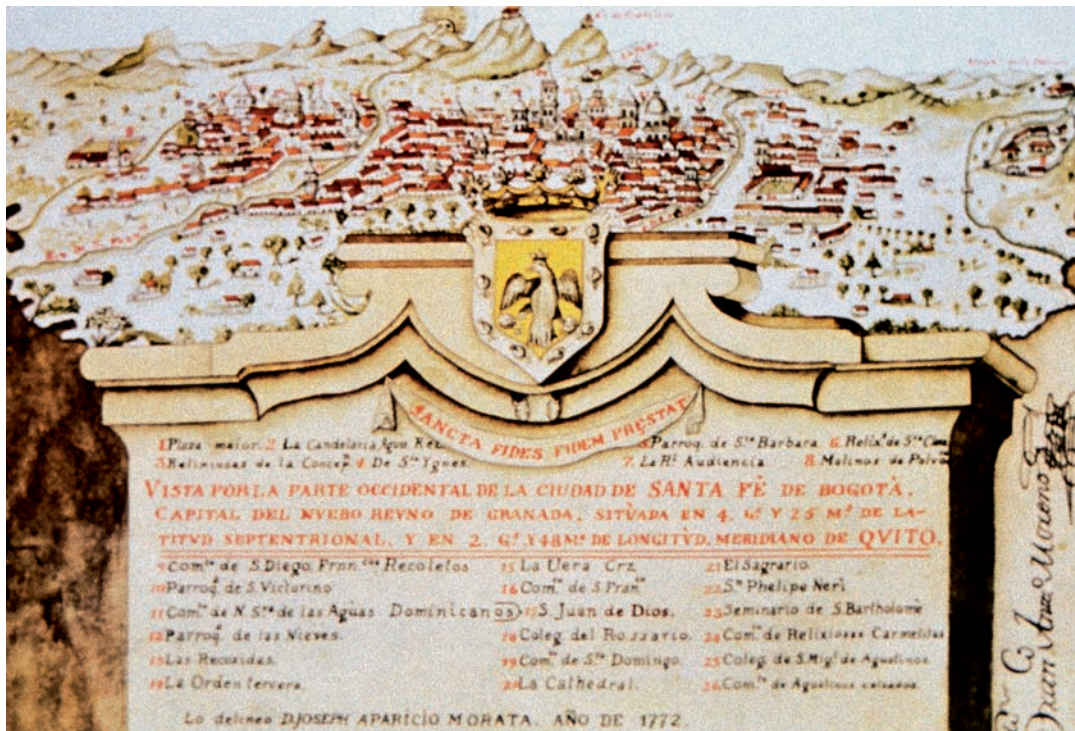 SANCTA FIDES FIDEM PRESTAT
1 Plaza maior. 2 La Candelaria Agus. Rec
5 Parroq. de S.ta Barbara 6. Relix.s de S.ta
3 Relixiosas de la Concep.n 4 De S.ta Ygnes
7. La R.l Audiencia 8 Molinos de Polvora
VISTA POR LA PARTE OCCIDENTAL DE LA CIUDAD DE SANTA FÈ DE BOGOTÀ,
CAPITAL DEL NVEBO REYNO DE GRANADA, SITVADA EN 4. G.s Y 25 M.s DE LA-
TITVD SEPTENTRIONAL, Y EN 2. G.s Y 48 M.s DE LONGITVD, MERIDIANO DE QVITO.
9 Com.to de S. Diego, Recoletos
10 Parroq.l de S. Victorino
11 Com.to de N. S.ra de las Agùas Dominicanos
12 Parroq.l de las Nieves.
13 Las Recoxidas.
14 La Orden tercera.
15 La Uera Crz
16 Com.to de S. Fran.co
17 S. Juan de Dios.
18 Coleg. del Rossario.
19 Com.to de S.to Domingo.
20 La Cathedral.
21 El Sagrario.
22 S.n Phelipe Neri
23 Seminario de S. Bartholome
24 Com.to de Relixiosas Carmelitas
25 Coleg. de S. Mig.l de Agustinos
26 Com.to de Agustinos calsados.
Lo delineo D. JOSEPH APARICIO MORATA. AÑO DE 1772.
Juan Moreno